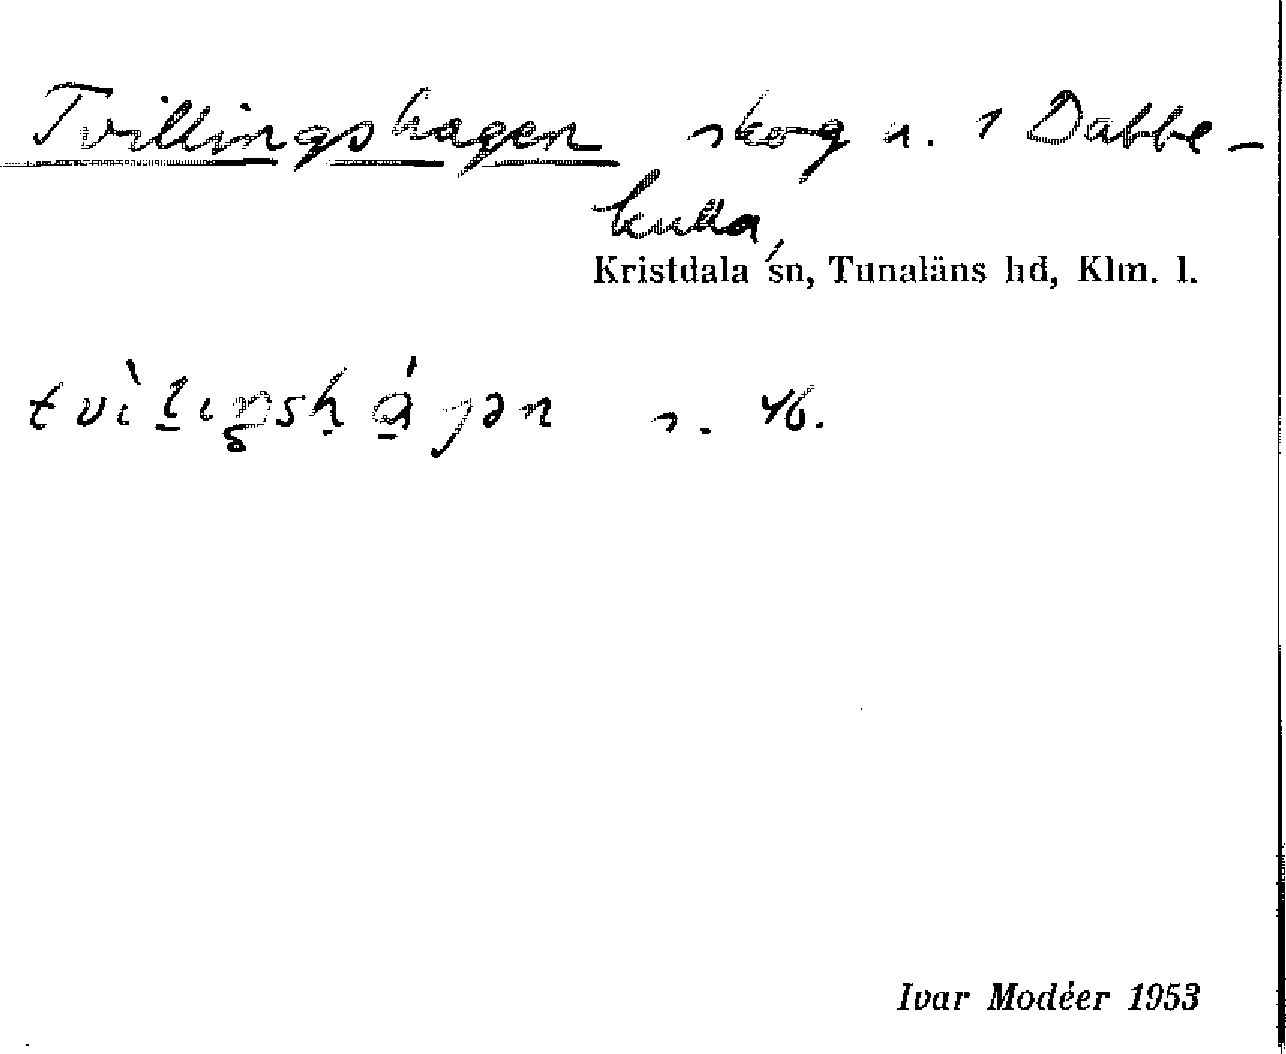 Tvillingshagen skog n. 1 Dabbe-
kulla,
Kristdala sn, Tunaläns hd, Klm. l.
tvìlıŋshágən s. 46.
Ivar Modéer 1953